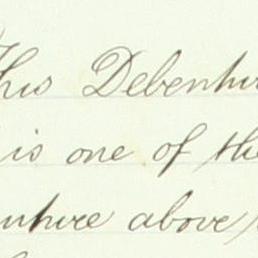 This Debentur
is one of the
enture above